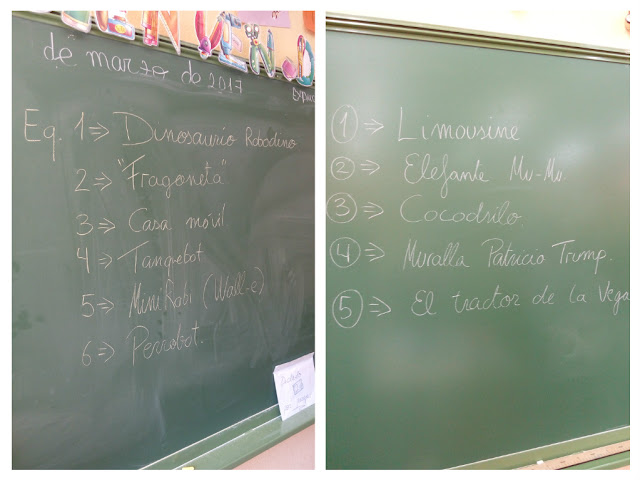 de marzo de 2017
Eq. 1 => Dinosaurio Robodino
2 => "Fragoneta"
3 => Casa móvil
4 => Tanquebot
5 => MiniRobi (Wall-e)
6 => Perrobot.
1 => Limousine
2 => Elefante Mu-Mu
3 => Cocodrilo.
4 => Muralla Patricio Trump.
5 => El tractor de la Vega